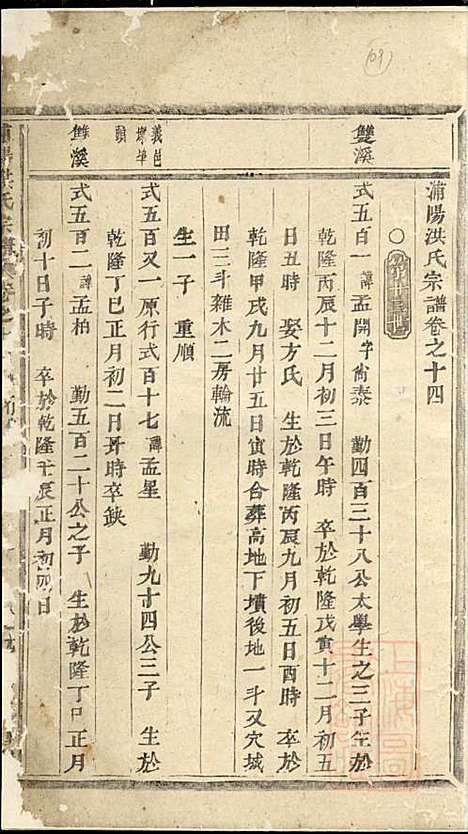 (69)
浦陽洪氏宗譜卷之十四
雙溪
式五百一諱孟開字尚泰 勤四百三十八公太學生之三子生於
乾隆丙辰十二月初三日午時 卒於乾隆戊寅十二月初五
日丑時 娶方氏 生於乾隆丙辰九月初五日酉時 卒於
乾隆甲戌九月廿五日寅時合葬高地下墳後地一斗又穴城
田三斗雜木二房輪流
生一子 重順
義邑
頭
式五百又一原行式百十七諱孟星 勤九十四公三子 生於
乾隆丁巳正月初二日丑時卒缺
雙溪
式五百二諱孟柏 勤五百二十公之子 生於乾隆丁巳正月
初十日子時 卒於乾隆壬辰正月初四日
陽洪氏宗譜